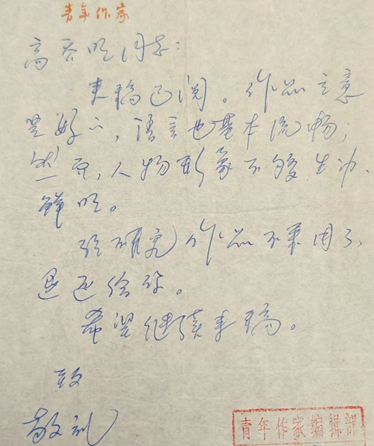 青年作家
高吾明同志：
来稿已阅。作品立意
是好的，语言也基本流畅；
然而，人物形象不够生动、
鲜明。
经研究，作品不采用了，
退还给你。
希望继续来稿。
致
敬礼
青年作家编辑部